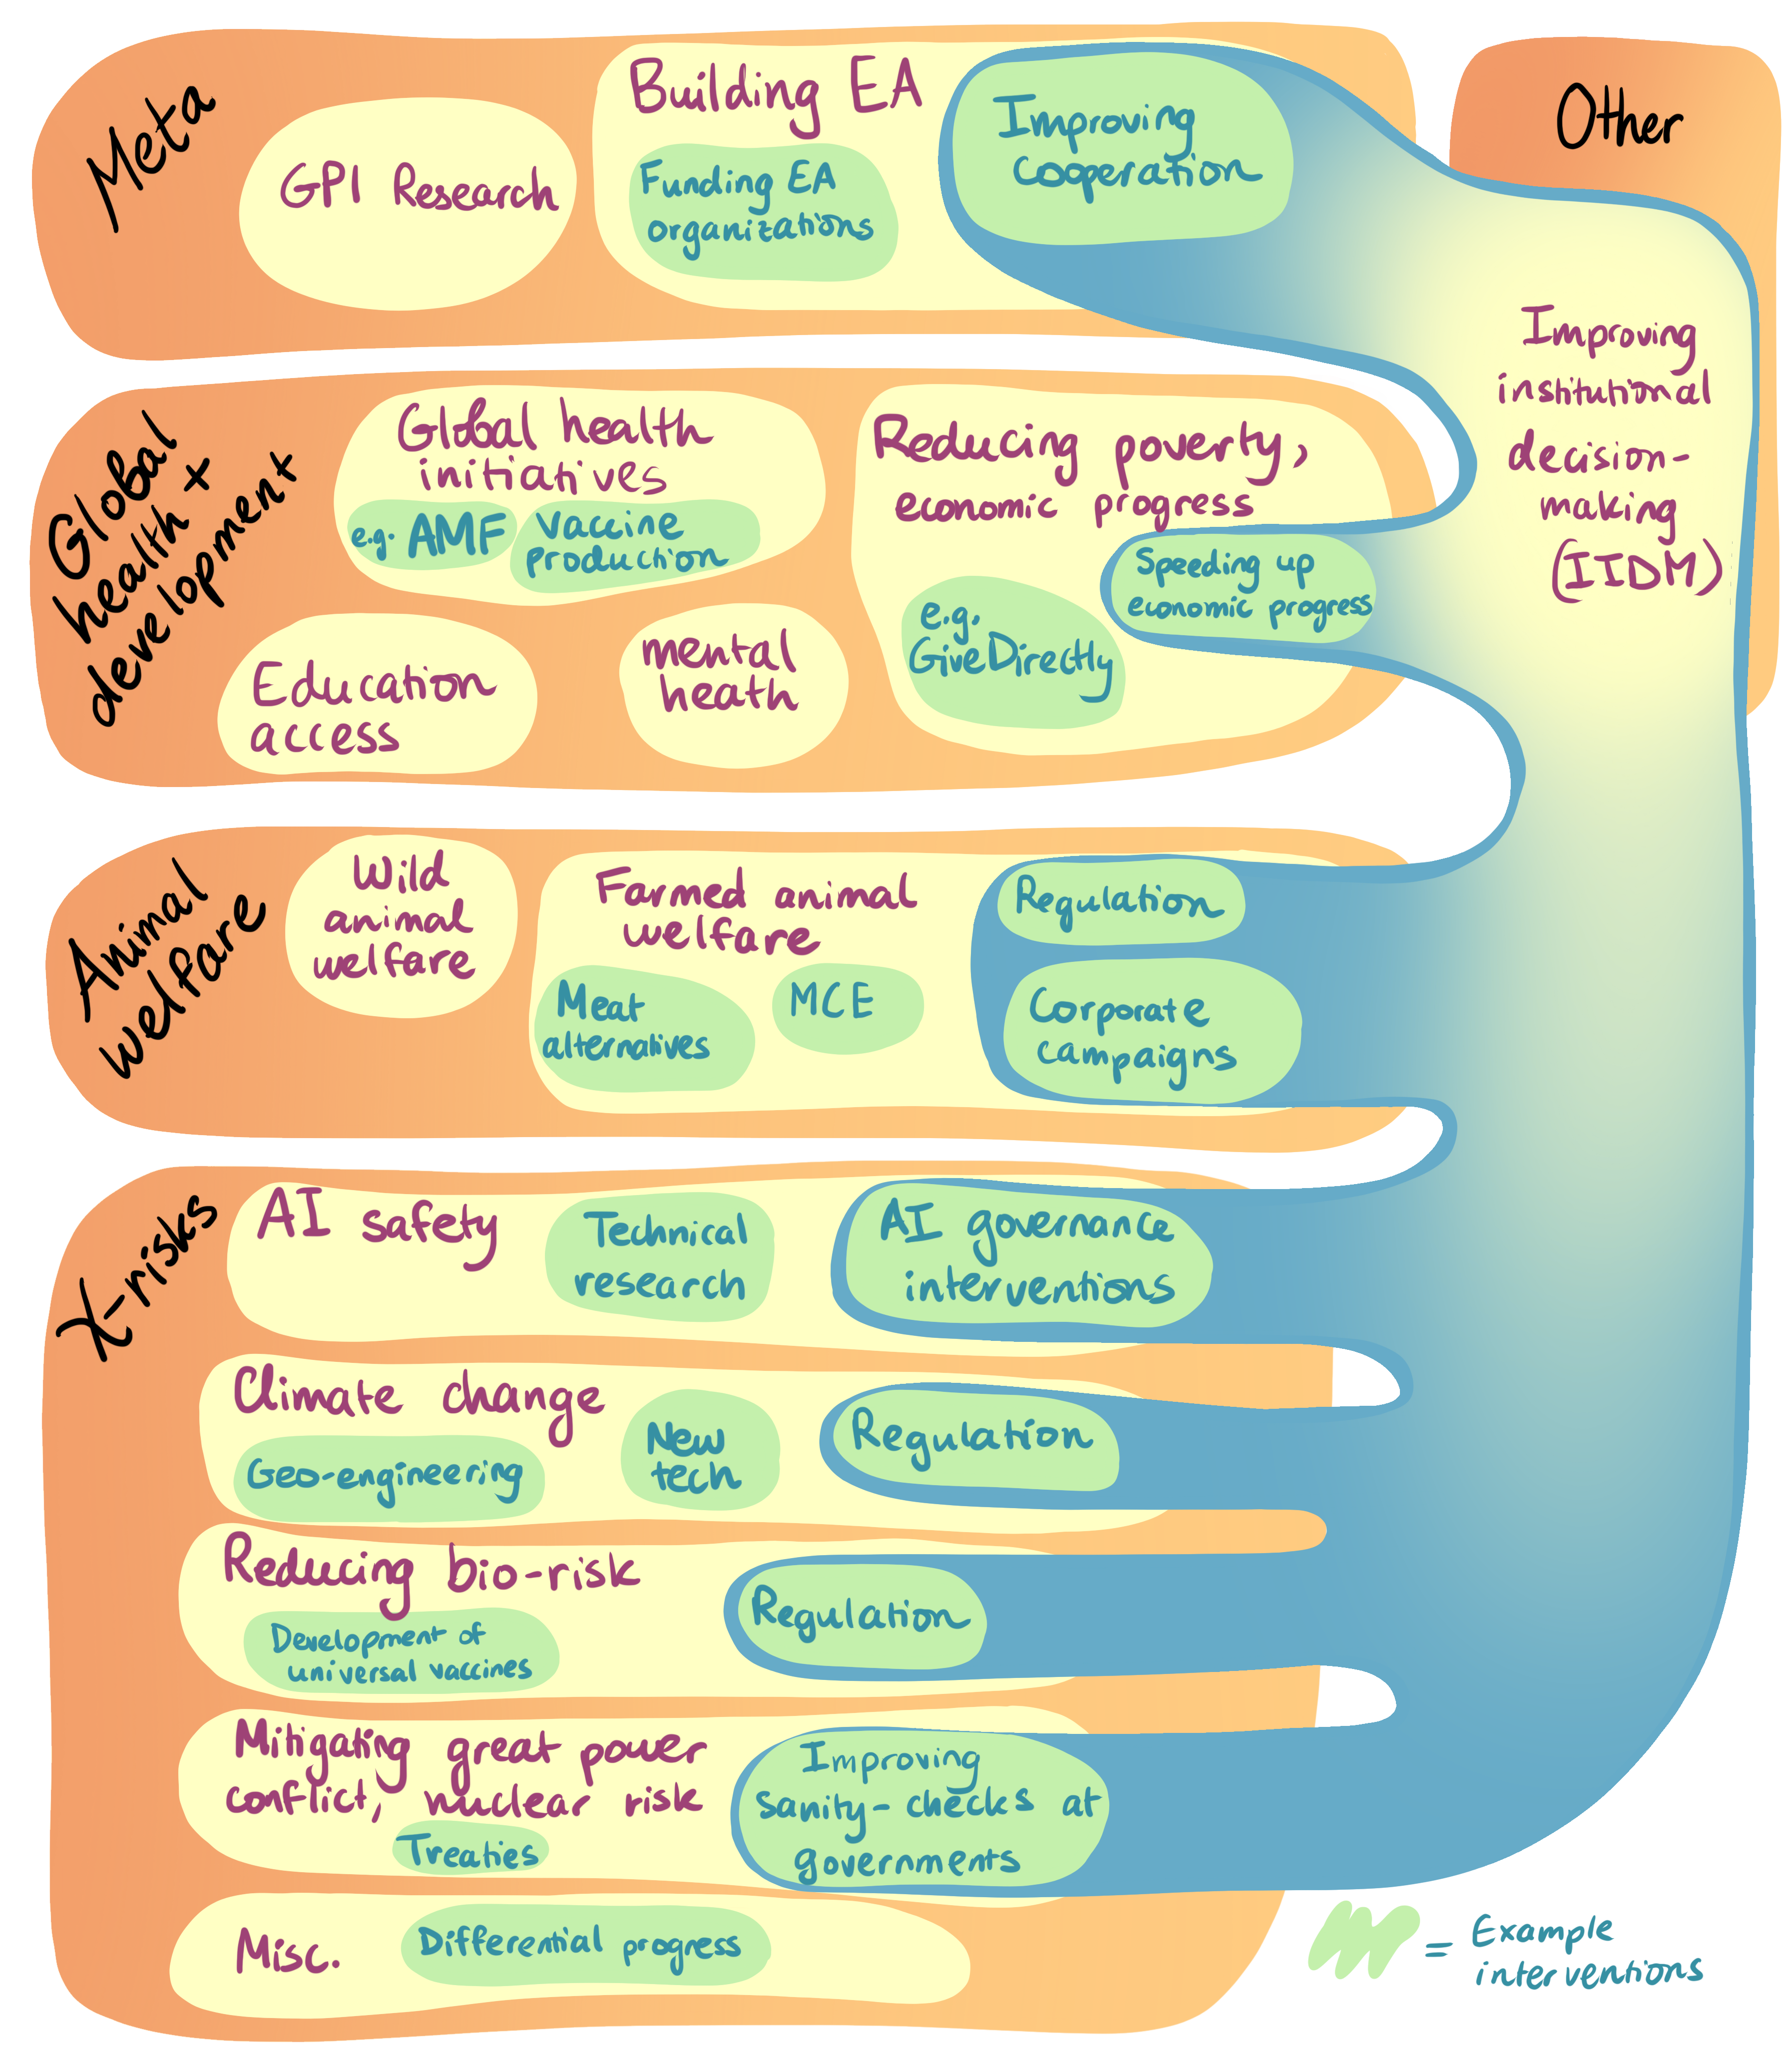 Meta
GPI Research
Building EA
Funding EA
organizations
Improving
cooperation
Other
Improving
institutional
decision-
making
(IIDM)
Global
health +
development
Global health
initiatives
e.g. AMF
vaccine
production
Education
access
mental
heath
Reducing poverty,
economic progress
e.g.
GiveDirectly
Speeding up
economic progress
Animal
welfare
Wild
animal
welfare
Farmed animal
welfare
Meat
alternatives
MCE
Regulation
Corporate
campaigns
X-risks
AI safety
Technical
research
AI governance
interventions
Climate change
Geo-engineering
New
tech
Regulation
Reducing bio-risk
Development of
universal vaccines
Regulation
Mitigating great power
conflict, nuclear risk
Treaties
Improving
sanity-checks at
governments
Misc.
Differential progress
= Example
interventions